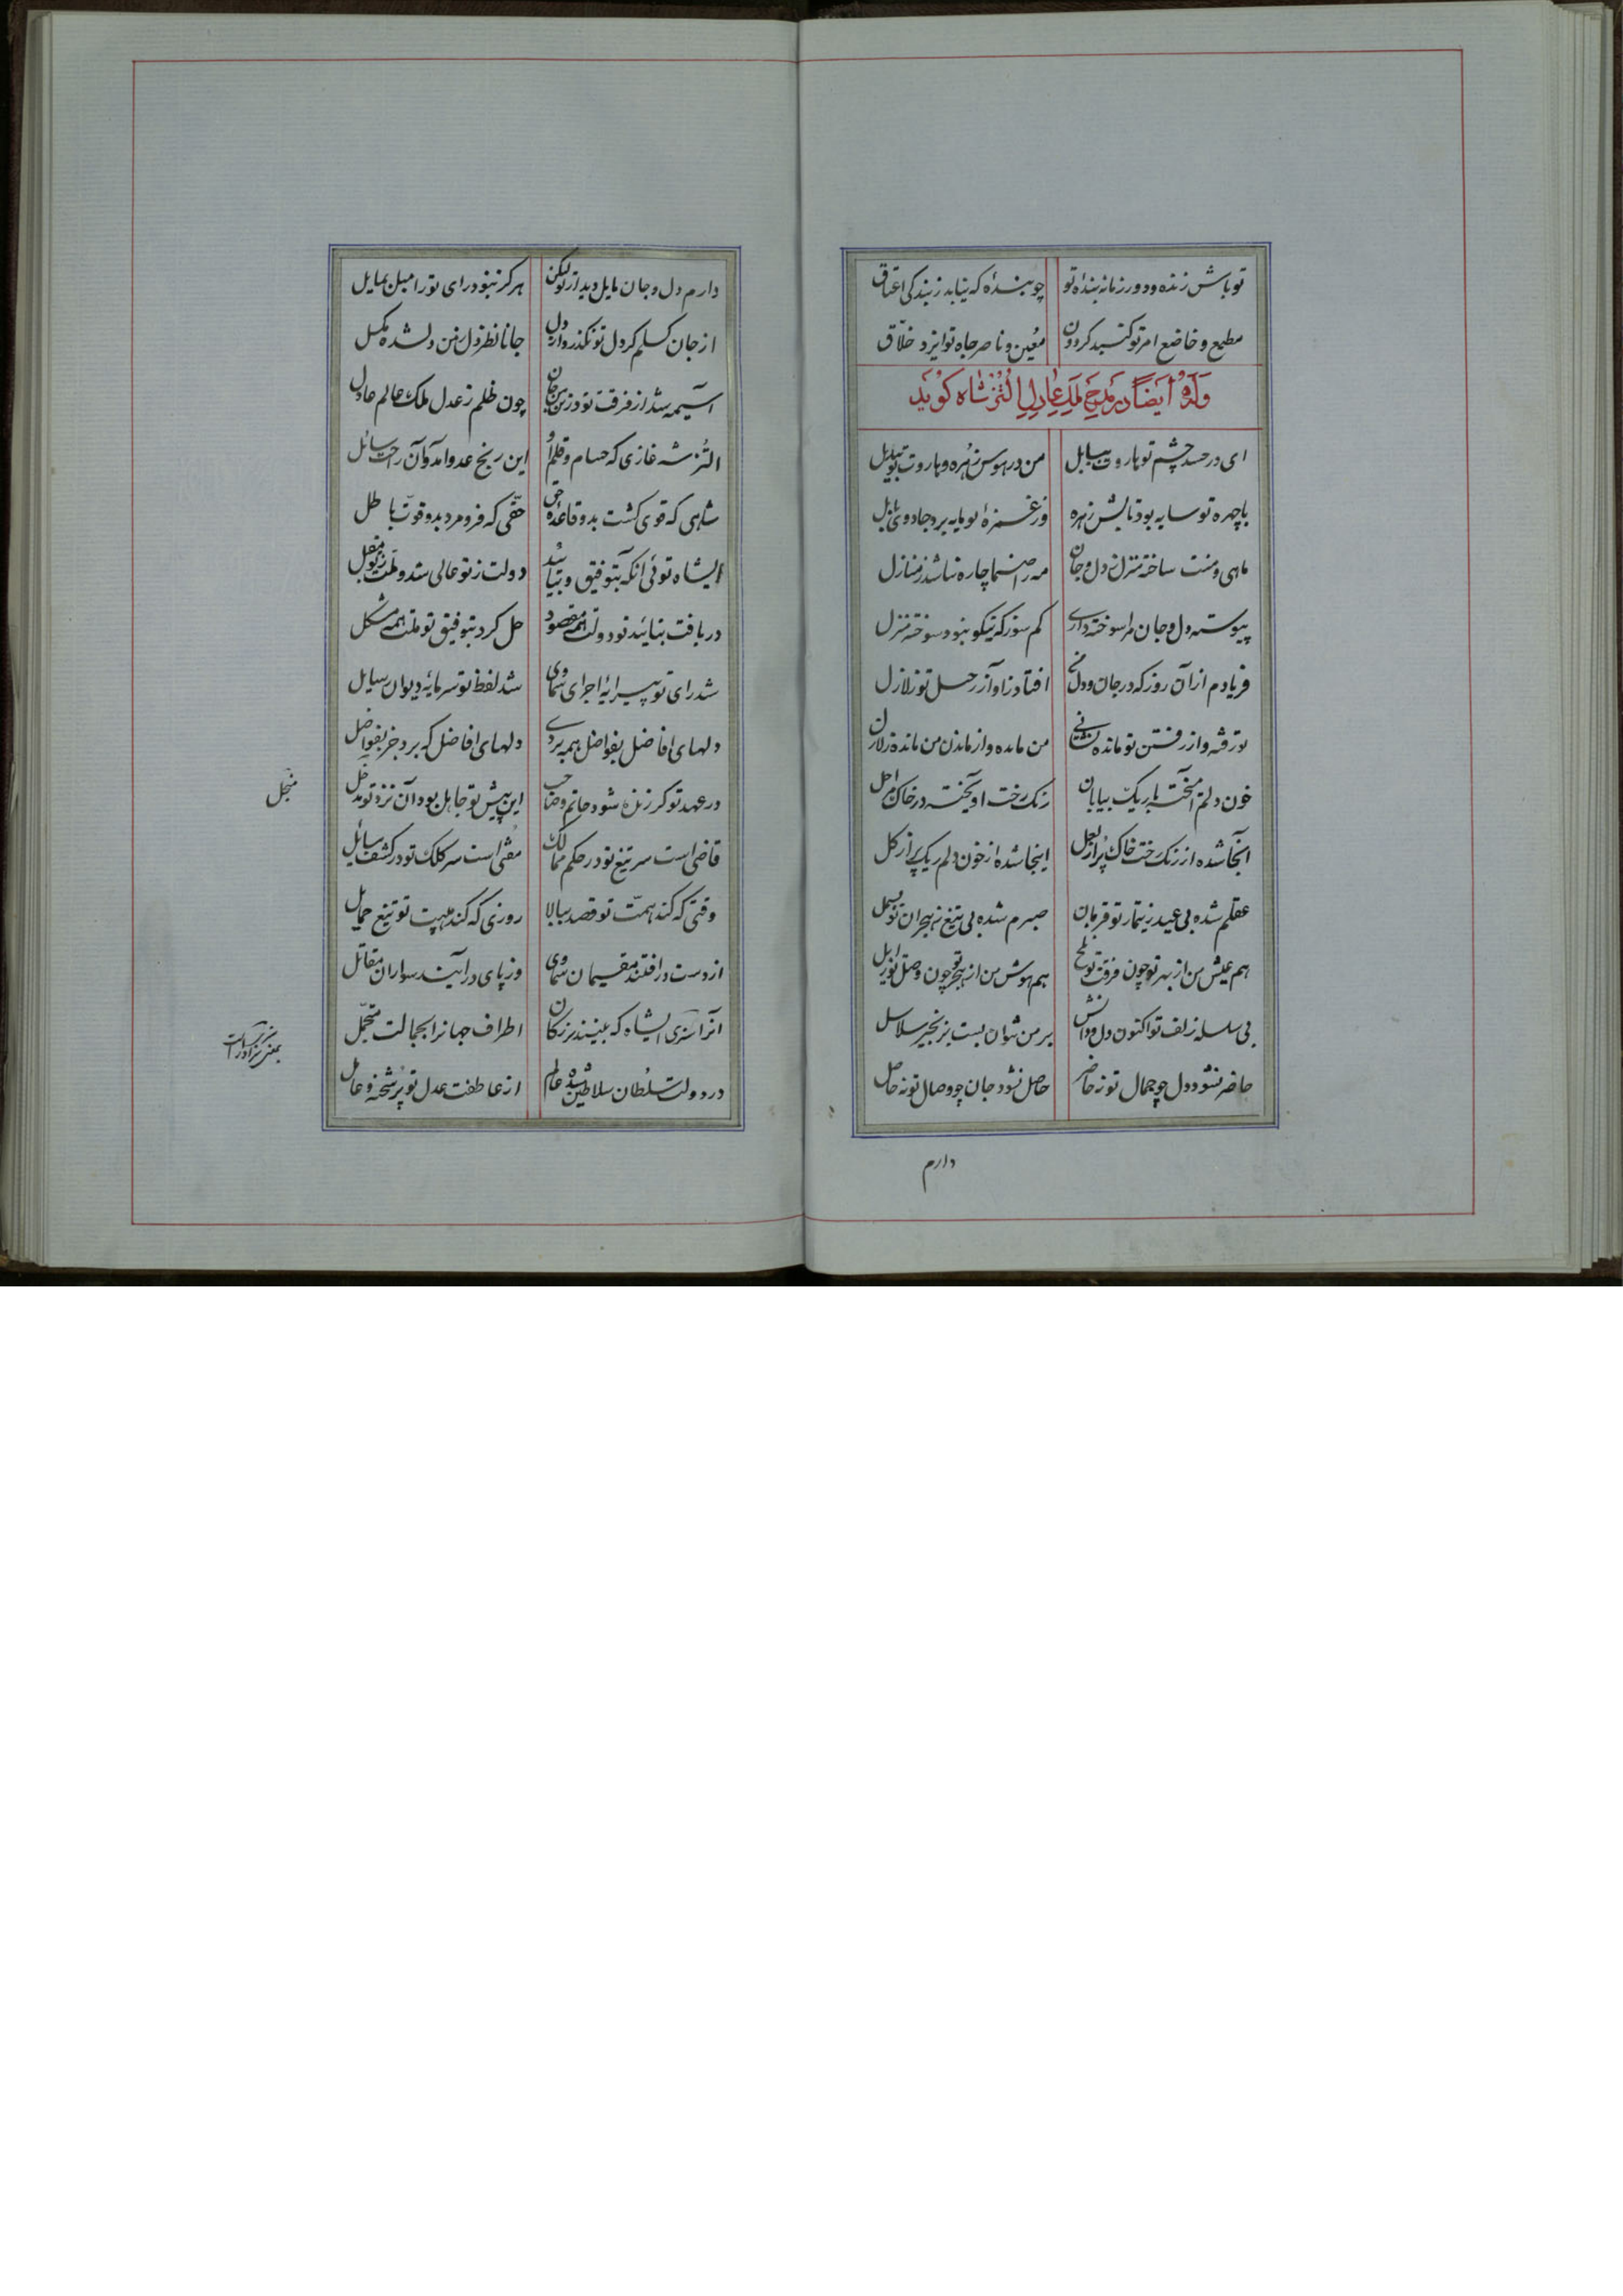 تو باش زنده و دور زمانه بنده تو چو بنده که نیابد ز بندگی اعتاق
مطیع و خاضع امر تو کنبد کردون معین و ناصر جاه تو ایزد خلاق
وله ایضاً در مدح ملک عادل التزشاه کوید
ای در حسد چشم تو هاروت ببابل من در هوس زهره و هاروت تو بیدل
با چهره تو سایه بود تابش زهره وز غمزه تو مایه برد جادوی بابل
ماهی و منت ساخته منزل ز دل و جان مه را صنما چاره نباشد ز منازل
پیوسته دل و جان مرا سوخته داری کم سوز که نیکو نبود سوخته منزل
فریادم از آن روز که در جان و دل افتاد ز آواز رحیل تو زلازل
تو رفته و از رفتن تو مانده من مانده و از ماندن من مانده
خون دلم آمیخته با ریک بیابان رنک رخت آویخته در خاک مراحل
آنجا شده از رنک رخت خاک پر از لعل اینجا شده از خون دلم ریک پر از کل
عقلم شده بی عید ز تیمار تو قربان صبرم شده بی تیغ ز هجران تو بسمل
هم عیش من از بهر تو چون فرقت تو تلخ هم هوش من از هجر تو چون وصل تو زایل
بی سلسله زلف تو اکنون دل و دانش بر من نتوان بست بزنجیر سلاسل
حاضر نشود دل چو جمال تو نه حاضر حاصل نشود جان چو وصال تو نه حاصل
دارم
دارم دل و جان مایل دیدار تو لیکن هرگز نبود رای تو را میل بمایل
از جان کسلم کر دل تو نکذرد از دل جانا نظر از دل من دلشده مکسل
آسیمه شد از فرقت تو در تن من جان چون ظلم ز عدل ملک عالم عادل
التز شه غازی که حسام و قلم او این رنج عدو آمد و آن راحت سائل
شاهی که قوی کشت بدو قاعده حق حقی که فرو مرد بدو قوت باطل
ایشاه توئی آنکه بتوفیق و بتایید دولت ز تو عالی شد و ملت
دریافت بتائید تو دولت همه مقصود حل کرد بتوفیق تو ملت همه مشکل
شد رای تو پیرایه اجرای سماوی شد لفظ تو سرمایه دیوان رسایل
دلهای افاضل بفواضل همه بردی دلهای افاضل که برد جز بفواضل
در عهد تو کر زنده شود حاتم و صاحب این پیش تو جاهل بود آن نزد تو مدخل
منجل
قاضی است سر تیغ تو در حکم ممالک مفتی است سر کلک تو در کشف مسائل
وقتی که کند همت تو قصد ببالا روزی که کند هیبت تو تیغ حمایل
از دست درافتند مقیمان سماوی وز پای درآیند سواران مقاتل
آنرا سزی ایشاه که بینند بزرکان اطراف جهانرا بجمالت متجمل
در دولت سلطان سلاطین شه عالم از عاطفت عدل تو پر شحنه و عامل